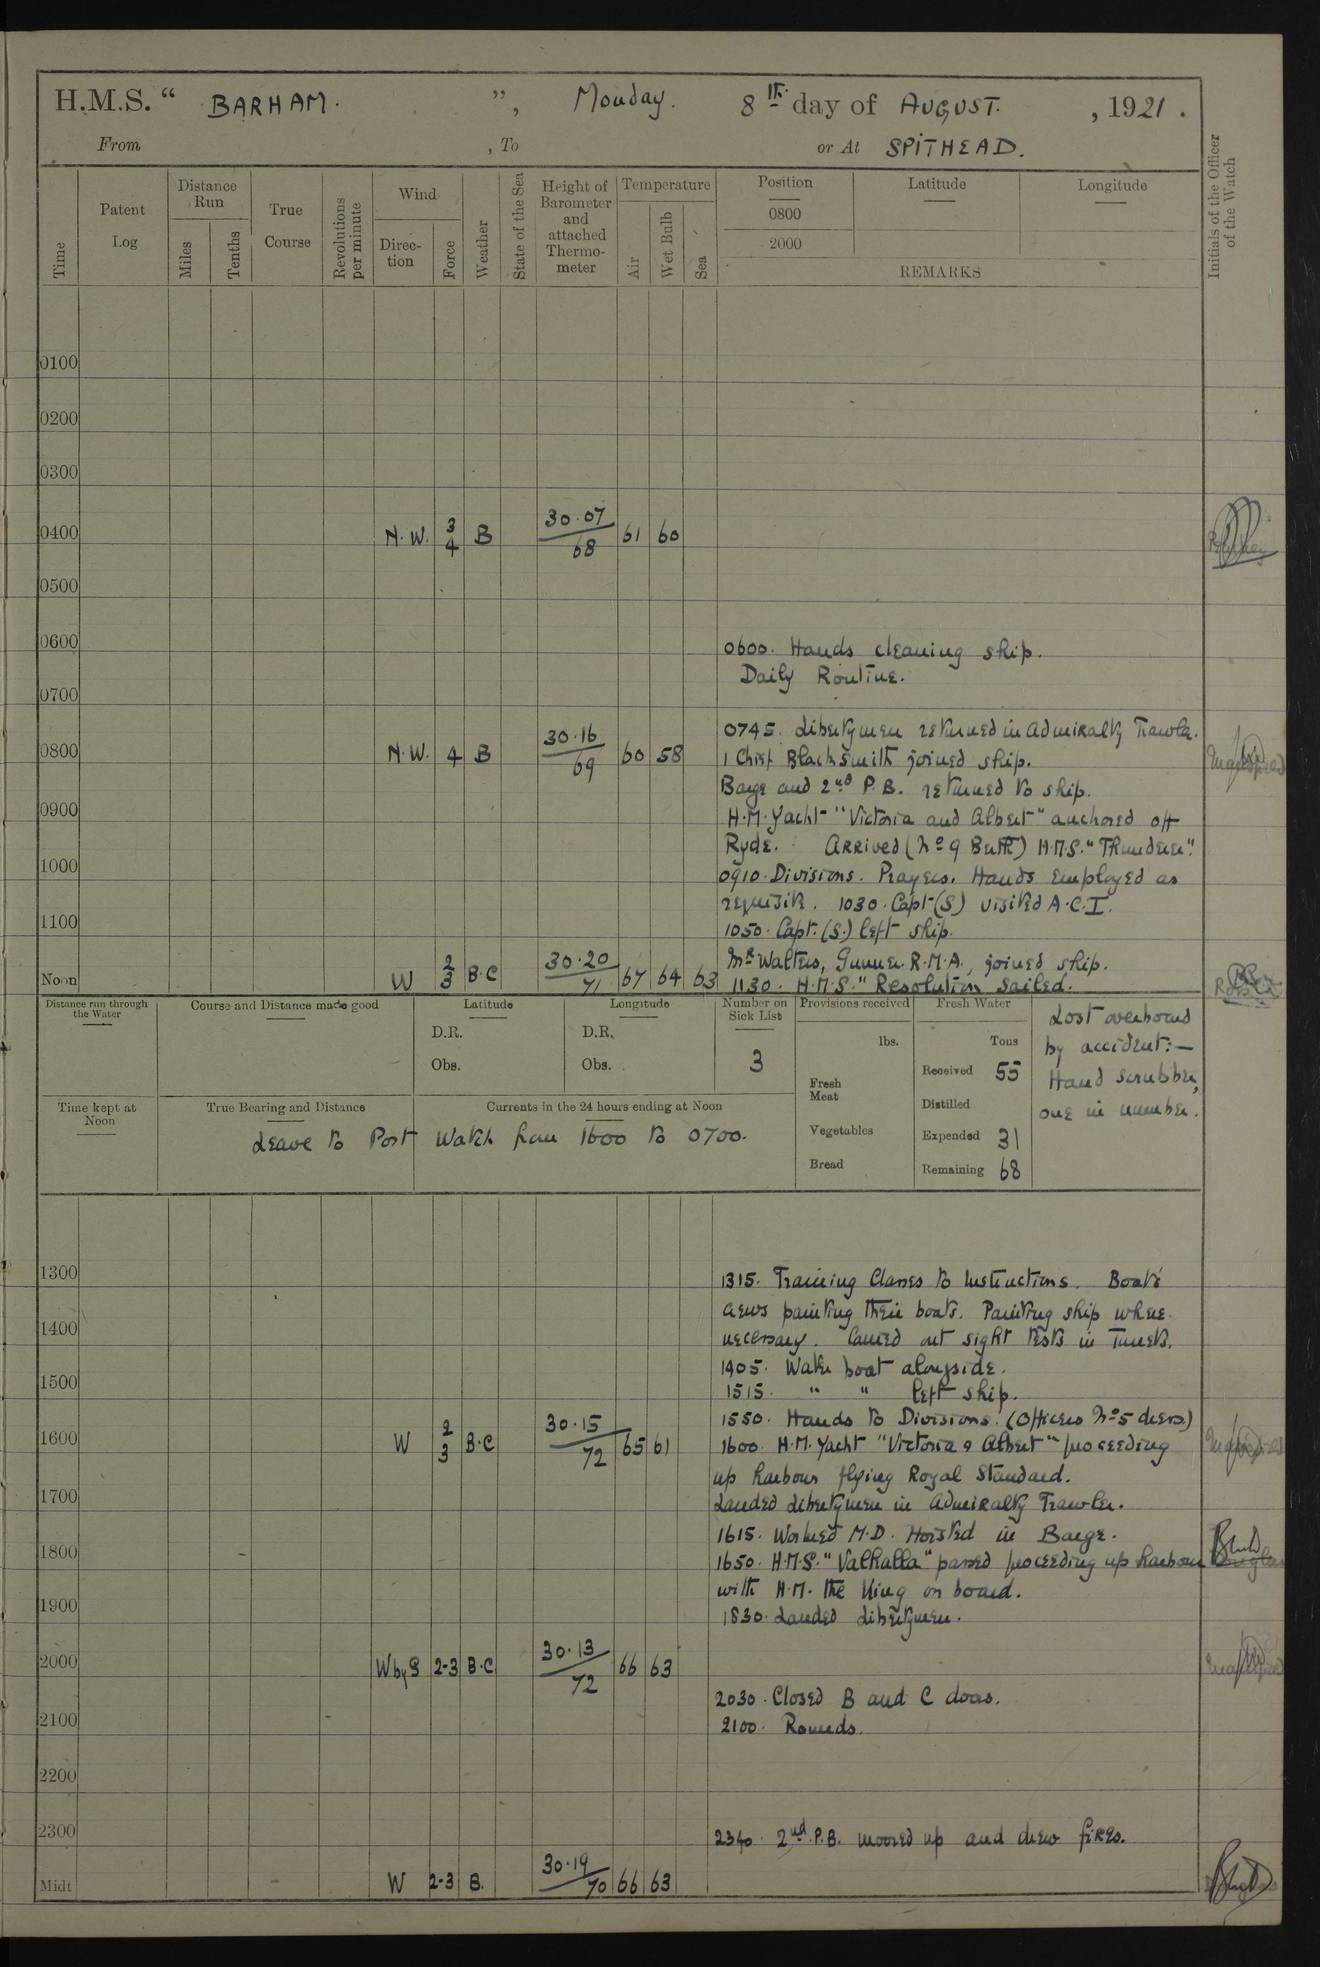 H.M.S. “ BARHAM. ”, Monday. 8th day of AUGUST. , 1921.
From , To or At SPITHEAD.
Time
Patent Log
Distance Run
Miles
Tenths
True Course
Revolutions per minute
Wind
Direc-tion
Force
Weather
State of the Sea
Height of Barometer and attached Thermo-meter
Temperature
Air
Wet Bulb
Sea
Position
0800
2000
Latitude
Longitude
REMARKS
Initials of the Officer of the Watch
0100
0200
0300
0400 N.W. 3 4 B 30.07 68 61 60
0500
0600
0600. Hands cleaning ship.
Daily Routine.
0700
0745. Libertymen returned in Admiralty Trawler.
0800 N.W. 4 B 30.16 69 60 58
1 Chief Blacksmith joined ship.
Barge and 2nd P.B. returned to ship.
0900
H.M. Yacht "Victoria and Albert" anchored off
Ryde. Arrived (No 9 Berth) H.M.S. "Thunderer".
1000
0910. Divisions. Prayers. Hands employed as
requisite. 1030. Capt (S) visited A.C.I.
1100
1050. Capt. (S.) left ship.
Mr Walters, Gunner. R.M.A., joined ship.
Noon W 2 3 B.C 30.20 71 67 64 63
1130. H.M.S. "Resolution sailed.
Distance run through the Water
Course and Distance made good
Latitude
D.R.
Obs.
Longitude
D.R.
Obs.
Number on Sick List
3
Provisions received
lbs.
Fresh Meat
Vegetables
Bread
Fresh Water
Tons
Received 55
Distilled
Expended 31
Remaining 68
Lost overboard
by accident:—
Hand scrubber,
one in number.
Time kept at Noon
True Bearing and Distance
Currents in the 24 hours ending at Noon
Leave to Port Watch from 1600 to 0700.
1300
1315. Training Classes to Instructions. Boats'
crews painting their boats. Painting ship where
1400
necessary. Carried out sight tests in Turrets.
1405. Water boat alongside.
1500
1515. " " left ship.
1550. Hands to Divisions. (Officers No 5 dress)
1600 W 2 3 B.C 30.15 72 65 61
1600. H.M. Yacht "Victoria & Albert" proceeding
up harbour flying Royal Standard.
1700
Landed Libertymen in Admiralty Trawler.
1615. Worked M.D. Hoisted in Barge.
1800
1650. H.M.S. "Valhalla" passed proceeding up harbour
with H.M. the King on board.
1900
1830. Landed Libertymen.
2000 W by S 2-3 B.C 30.13 72 66 63
2030. Closed B and C doors.
2100
2100. Rounds.
2200
2300
2340. 2nd P.B. moored up and drew fires.
Midt W 2-3 B. 30.19 70 66 63